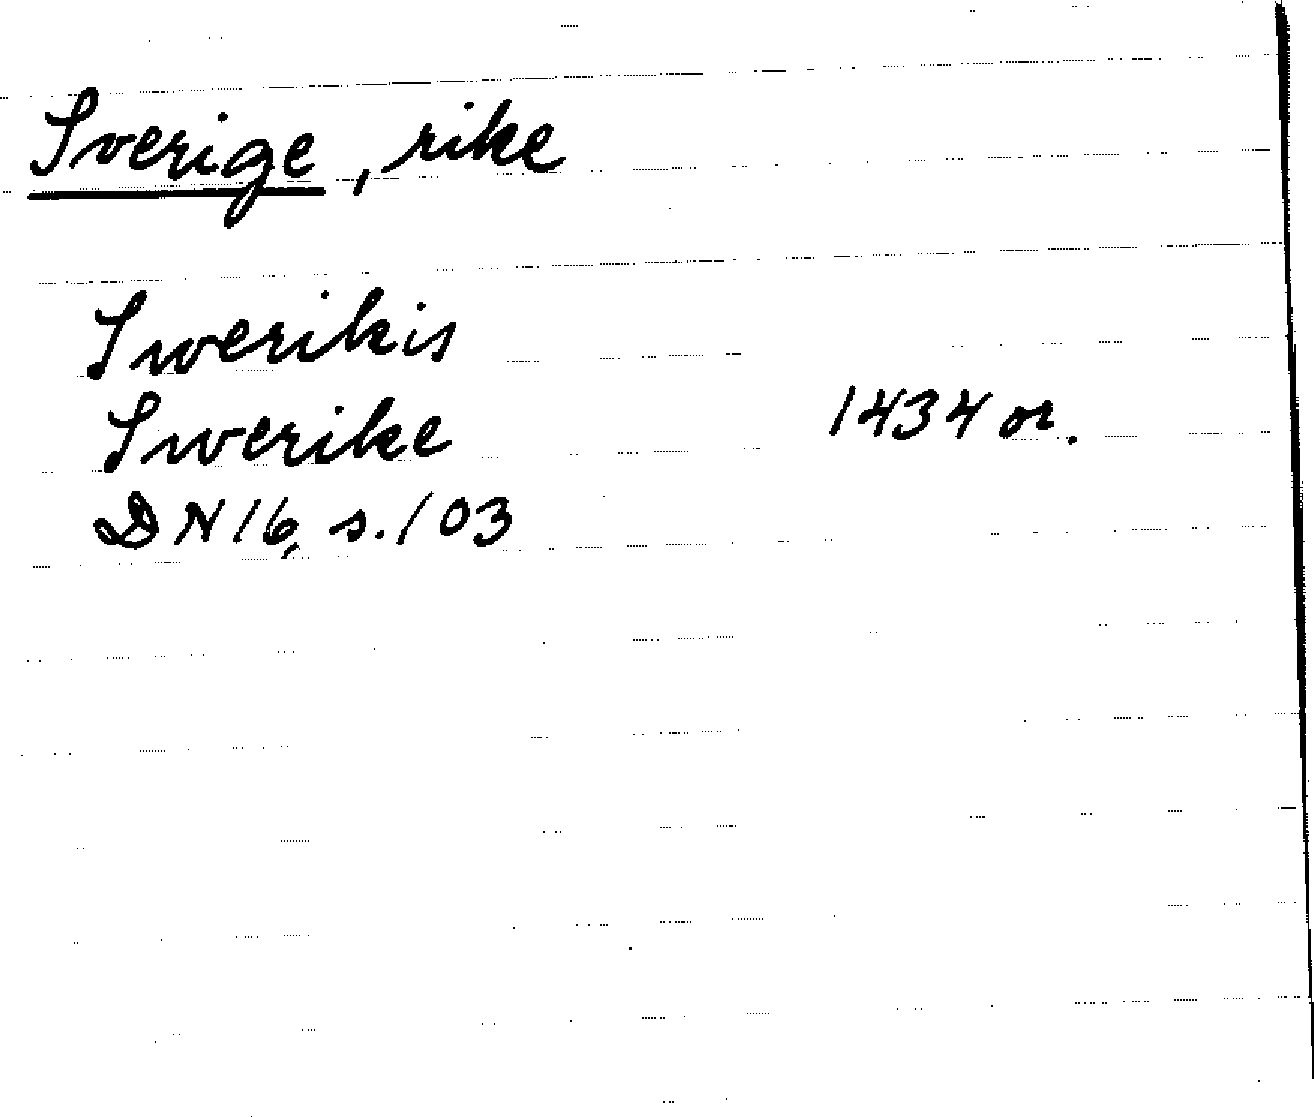 Sverige, rike
Swerikis
Swerike 1434 or.
DN 16, s. 103